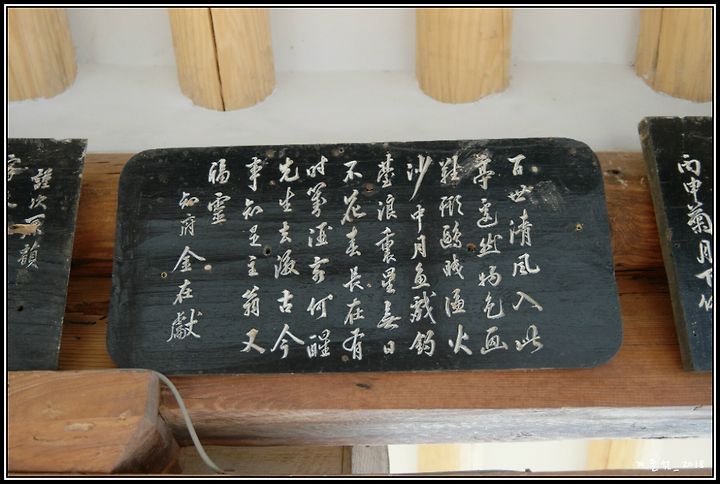 丙申菊月下
百世清風入此
亭然物色画
難形鷗眠漁火
沙中月魚戱釣
臺浪裏星無日
不花春長在有
时酒客何醒
先生去後古今
事知是主翁又
靈
知府 金在獻
謹次原韻